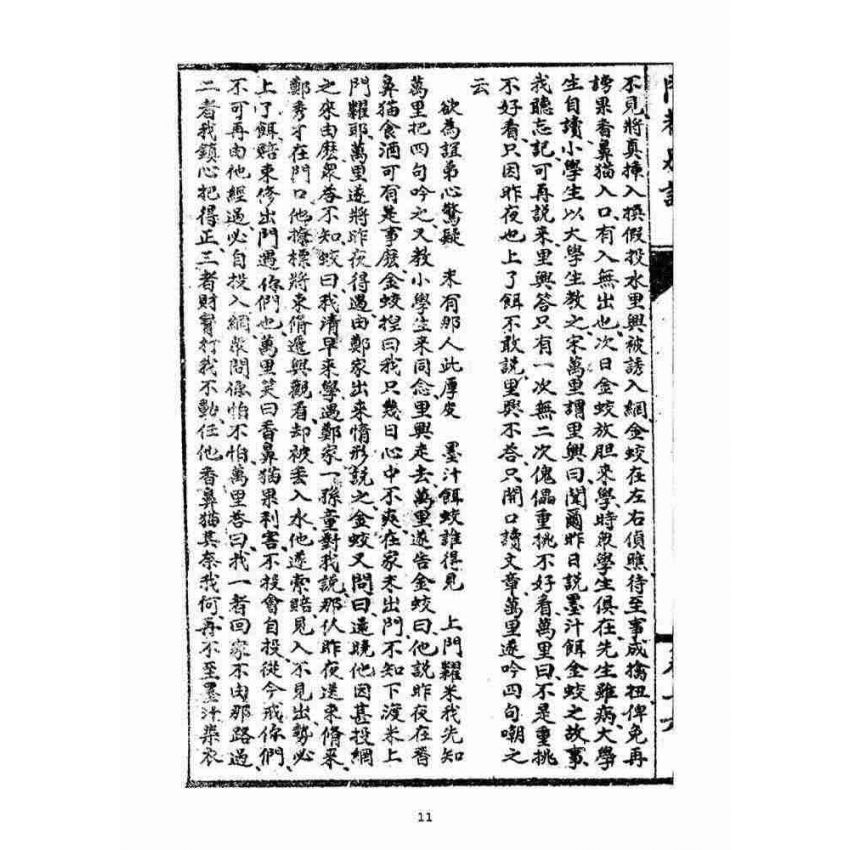 不見將真揷入換假投水里興被誘入網金蛟在左右偵瞧待至事成擒扭俾免再
謗果香鼻猫入口有入無出也次日金蛟放胆来學時衆學生俱在先生雖病大學
生自讀小學生以大學生教之宋萬里謂里興曰聞爾昨日説墨汁餌金蛟之故事
我聽忘記可再説来里興答只有一次無二次傀儡重挑不好看萬里曰不是重挑
不好看只因昨夜也上了餌不敢説里興不答只開口讀文章萬里遂吟四句嘲之
云
欲為誼弟心驚疑　未有那人此厚皮　墨汁餌蛟誰得見　上門糶米我先知
萬里把四句吟之又教小學生来同念里興走去萬里遂告金蛟曰他説昨夜在香
鼻猫食酒可有是事麽金蛟揑曰我只幾日心中不爽在家未出門不知下渡米上
門糶耶萬里遂將昨夜得遇由鄭家出来情形説之金蛟又問曰還曉他因甚投網
之来由麽衆答不知蛟曰我清早来學遇鄭家一孫童對我説那伙昨夜送束脩来
鄭秀才在門口他撫標將束脩遞興觀看却被丢入水他遂索賠見入不見出勢必
上了餌賠束修出門遇你們也萬里笑曰香鼻猫果利害不投會自投從今戒你們
不可再由他經過必自投入網衆問你怕不怕萬里答曰我一者回家不由那路過
二者我鎖心把得正三者財寶打我不動任他香鼻猫其奈我何再不至墨汁染衣
11